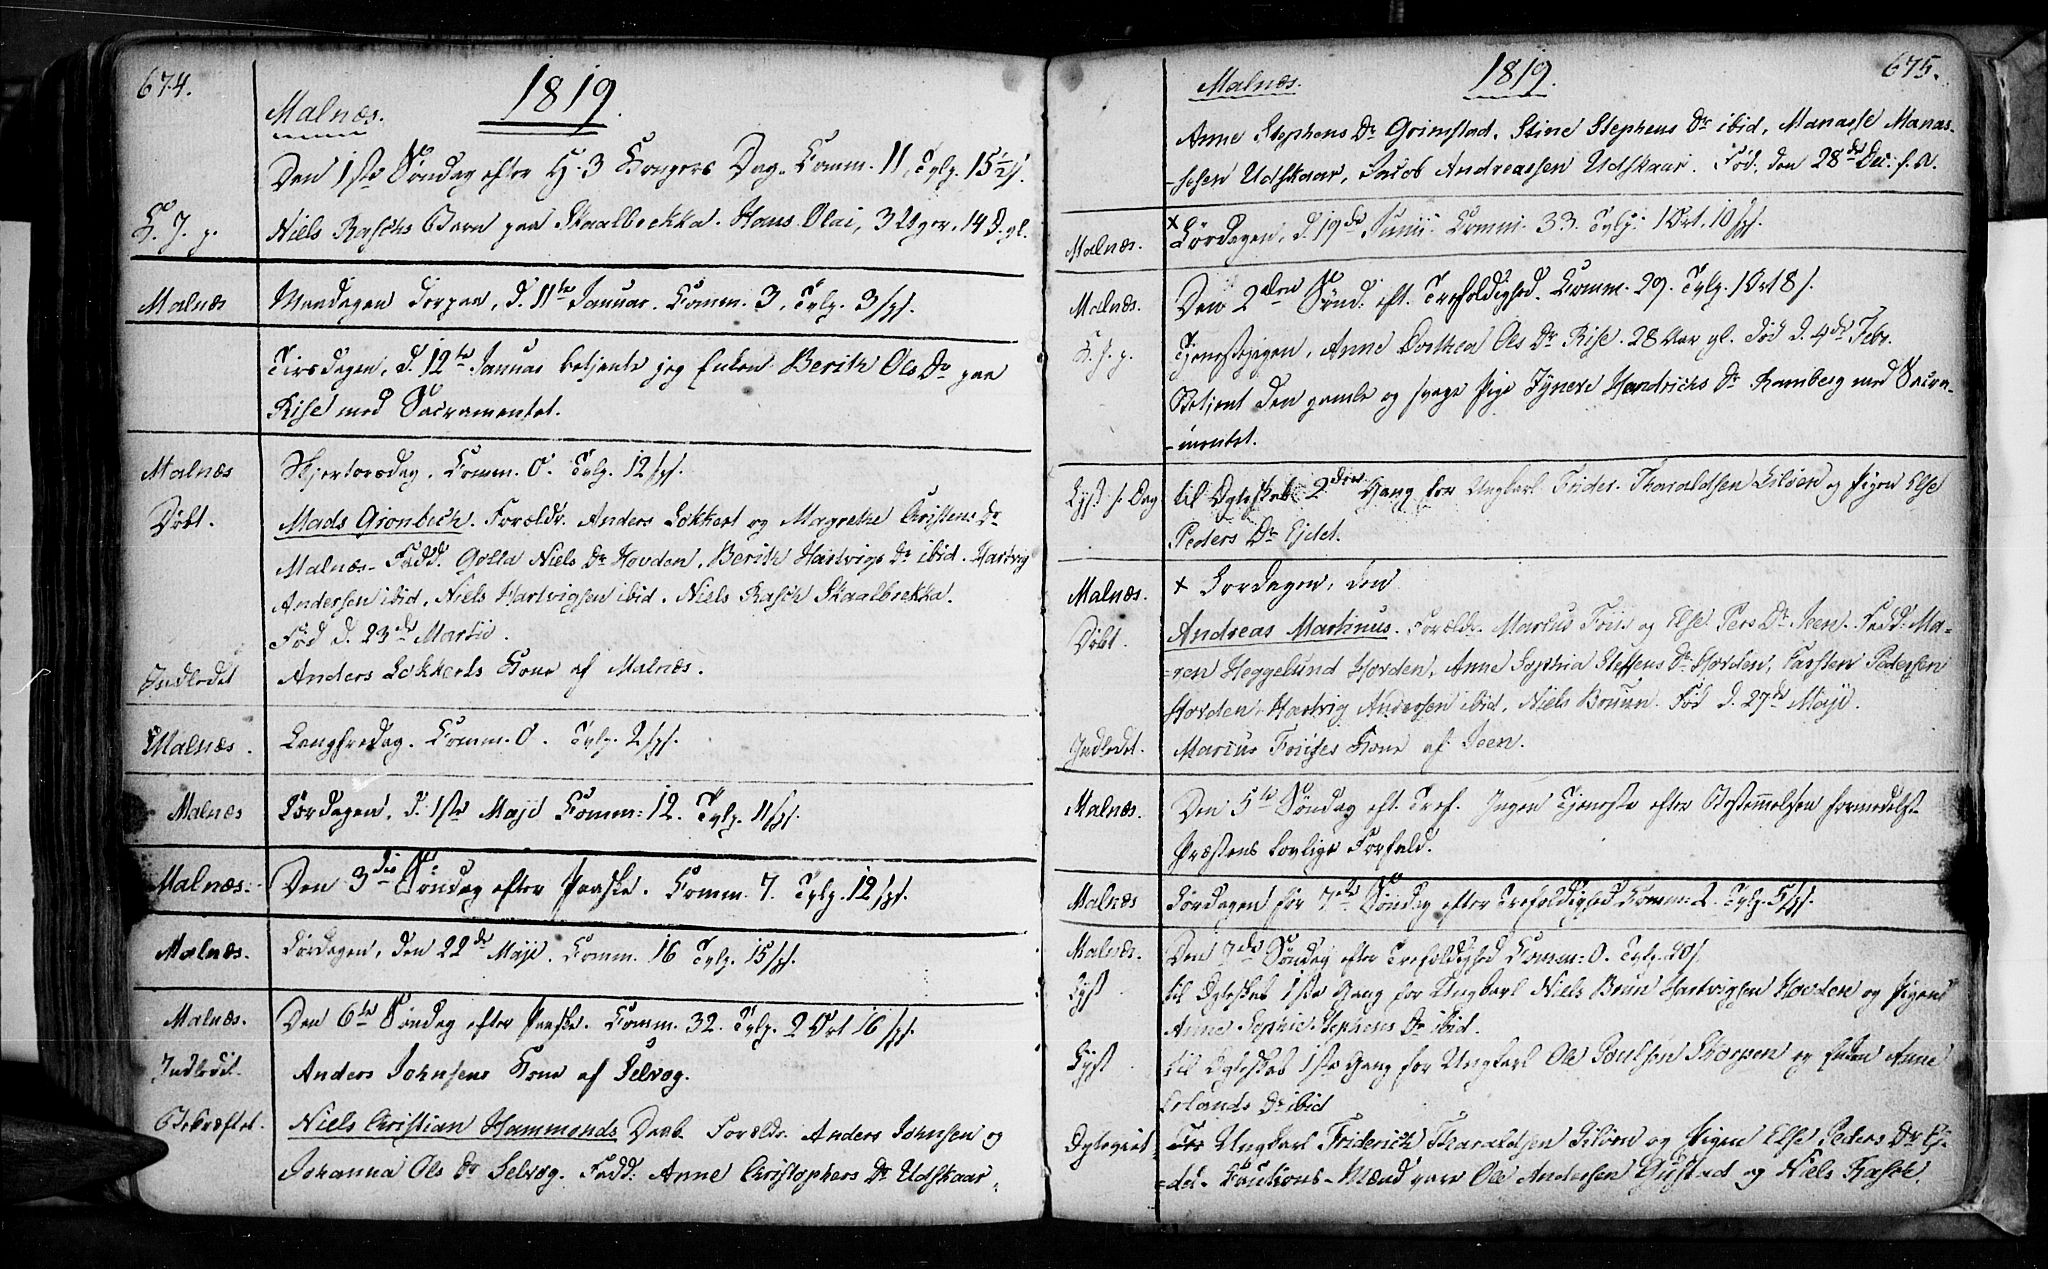 674.
1819.
Malnæs.
Den 1ste Søndag efter H. 3 Kongers Dag. Komm. 11, Tylg. 15½ s.
K. J. p. Niels Raschs Barn paa Skaalbrekka. Hans Olai, 3 Uger, 14 D. gl.
Malnæs Mandagen derpaa, d. 11te Januar. Komm. 3, Tylg. 3 sps.
Tirsdagen, d. 12te Januar betjente jeg Enken Berith Ols Dr paa
Rise med Sacramentet.
Malnæs Skjertorsdag. Komm. 0. Tylg. 12 sps.
Døbt. Mads Gronbech. Forældr. Anders Lokkert og Magrethe Cristens Dr
Malnæs. Fadd. Golla Niels Dr Hovden, Berith Hartvigs Dr ibid. Hartvig
Andersen ibid, Niels Hartvigsen ibid. Niels Rasch Skaalbrekka.
Fød d. 23de Martii.
Indledet Anders Lokkerts Kone af Malnæs.
Malnæs. Langfredag. Komm. 0. Tylg. 2 sps.
Malnæs Lørdagen, d. 1ste Maji Komm: 12. Tylg. 11 sps.
Malnæs. Den 3die Søndag efter Paaske. Komm. 7. Tylg. 12 sps.
Malnæs. Lørdagen, den 22de Maji. Komm. 16 Tylg. 15 sps.
Malnæs. Den 6te Søndag efter Paaske. Komm. 32. Tylg. 2 Ort 16 sps.
Indledet. Anders Johnsens Kone af Selvog.
Bekræftet. Niels Cristian Hammonds Daab. Forældr. Anders Johnsen og
Johanna Ols Dr Selvog. Fadd: Anne Christophers Dr Udskaar,
675.
1819.
Malnæs.
Anne Stephens Dr Grimstad, Stine Stephens Dr ibid, Manasse Manas-
-sesen Udskaar, Jacob Andreassen Udskaar. Fød, den 28de Dec. f. A.
Malnæs. × Lørdagen, d. 19de Junii. Komm. 33. Tylg. 1 Ort, 10 sps.
Malnæs. Den 2den Sønd. eft. Trefoldighed. Komm. 29. Tylg. 1 Ort 8 s.
K. J. p. Tjenestepigen, Anne Dorthea Ols Dr Rise. 28 Aar gl. død d. 4de Febr.
Betjent den gamle og svage Pige Hendrichs Dr Ramberg med Sacra-
-mentet.
Lyst s. Dag til Ægteskab 2den Gang for Ungkarl Frider. Tharaldsen og Pigen Else
Peders Dr Ejdet.
Malnæs. × Lørdagen, den
Døbt. Andreas Martinus. Forældr. Marcus Friis og Else Pers Dr Steen. Fadd: Ma-
=ren Heggelund Hovden, Anne Sophia Steffens Dr Hovden, Carsten Pedersen
Hovden, Hartvig Andersen ibid, Niels Bruun. Fød d. 27de Maji.
Indledet. Marcus Friises Kone af Steen.
Malnæs. Den 5te Søndag eft. Tref. Ingen Tjeneste efter Bestemmelsen formedelst
Præstens lovlige Forfald.
Malnæs Lørdagen før 7de Søndag efter Trefoldighed Komm: 2. Tylg. 5 sps.
Malnæs. Den 7de Søndag efter Trefoldighed Komm: 0. Tylg. 20 s.
Lyst til Ægteskab 1ste Gang for Ungkarl Niels Brun Hartvigsen Hovden og Pigen
Anne Sophie Stephens Dr ibid.
Lyst til Ægteskab 1ste Gang for Ungkarl Ole Poulsen Skorpen og Enken Anne
Erlands Dr ibid
Ægteviet Ungkarl Friderich Tharaldsen og Pigen Else Peders Dr Ej-
=det. Cautions-Mænd vare Ole Andersen Gustad og Niels Rasch.